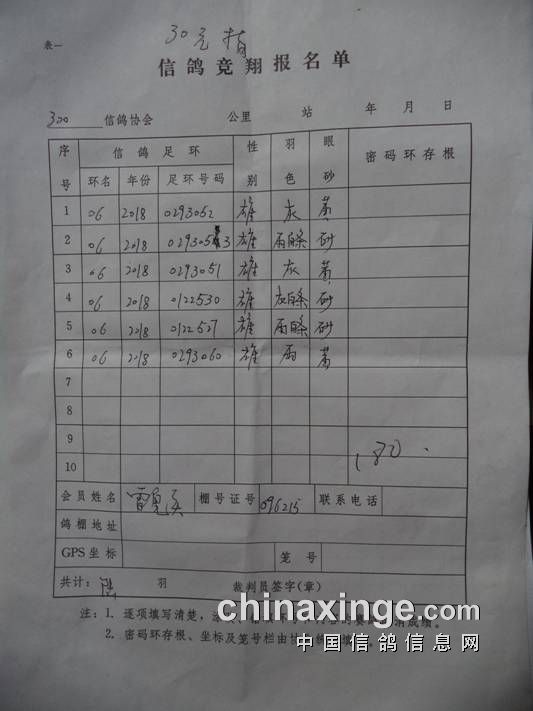 30元
表一
信鸽竞翔报名单
300 信鸽协会 公里 站 年 月 日
序号 信鸽足环 性别 羽色 眼砂 密码环存根
环名 年份 足环号码
1 06 2018 0293052 雄 灰 黄
2 06 2018 029305 3 雄 雨白条 砂
3 06 2018 0293051 雄 灰 黄
4 06 2018 0122530 雄 灰白条 砂
5 06 2018 0122527 雄 雨白条 砂
6 06 2018 0293060 雄 雨 黄
7
8
9
180
10
会员姓名 雷 棚号证号 096215 联系电话
鸽棚地址
GPS坐标 笼号
共计: 陆 羽 裁判员签字(章)
注: 1. 逐项填写清楚, 消成绩。
2. 密码环存根、坐标及笼号栏由 填
chinaxinge.com
中国信鸽信息网